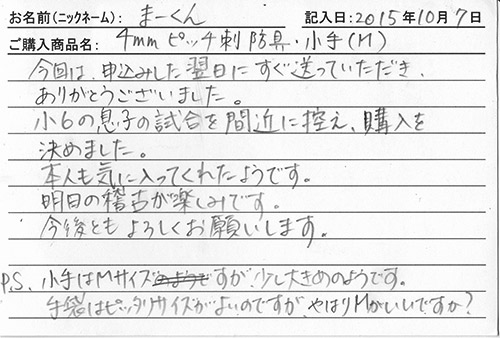 お名前(ニックネーム): まーくん 記入日:2015年10月7日
ご購入商品名: 4mmピッチ刺 防具・小手(M)
今回は、申込みした翌日にすぐ送っていただき、
ありがとうございました。
小6の息子の試合を間近に控え、購入を
決めました。
本人も気に入ってくれたようです。
明日の稽古が楽しみです。
今後ともよろしくお願いします。
P.S. 小手はMサイズのようですが、少し大きめのようです。
手袋はピッタリサイズがよいのですが、やはりMがいいですか?